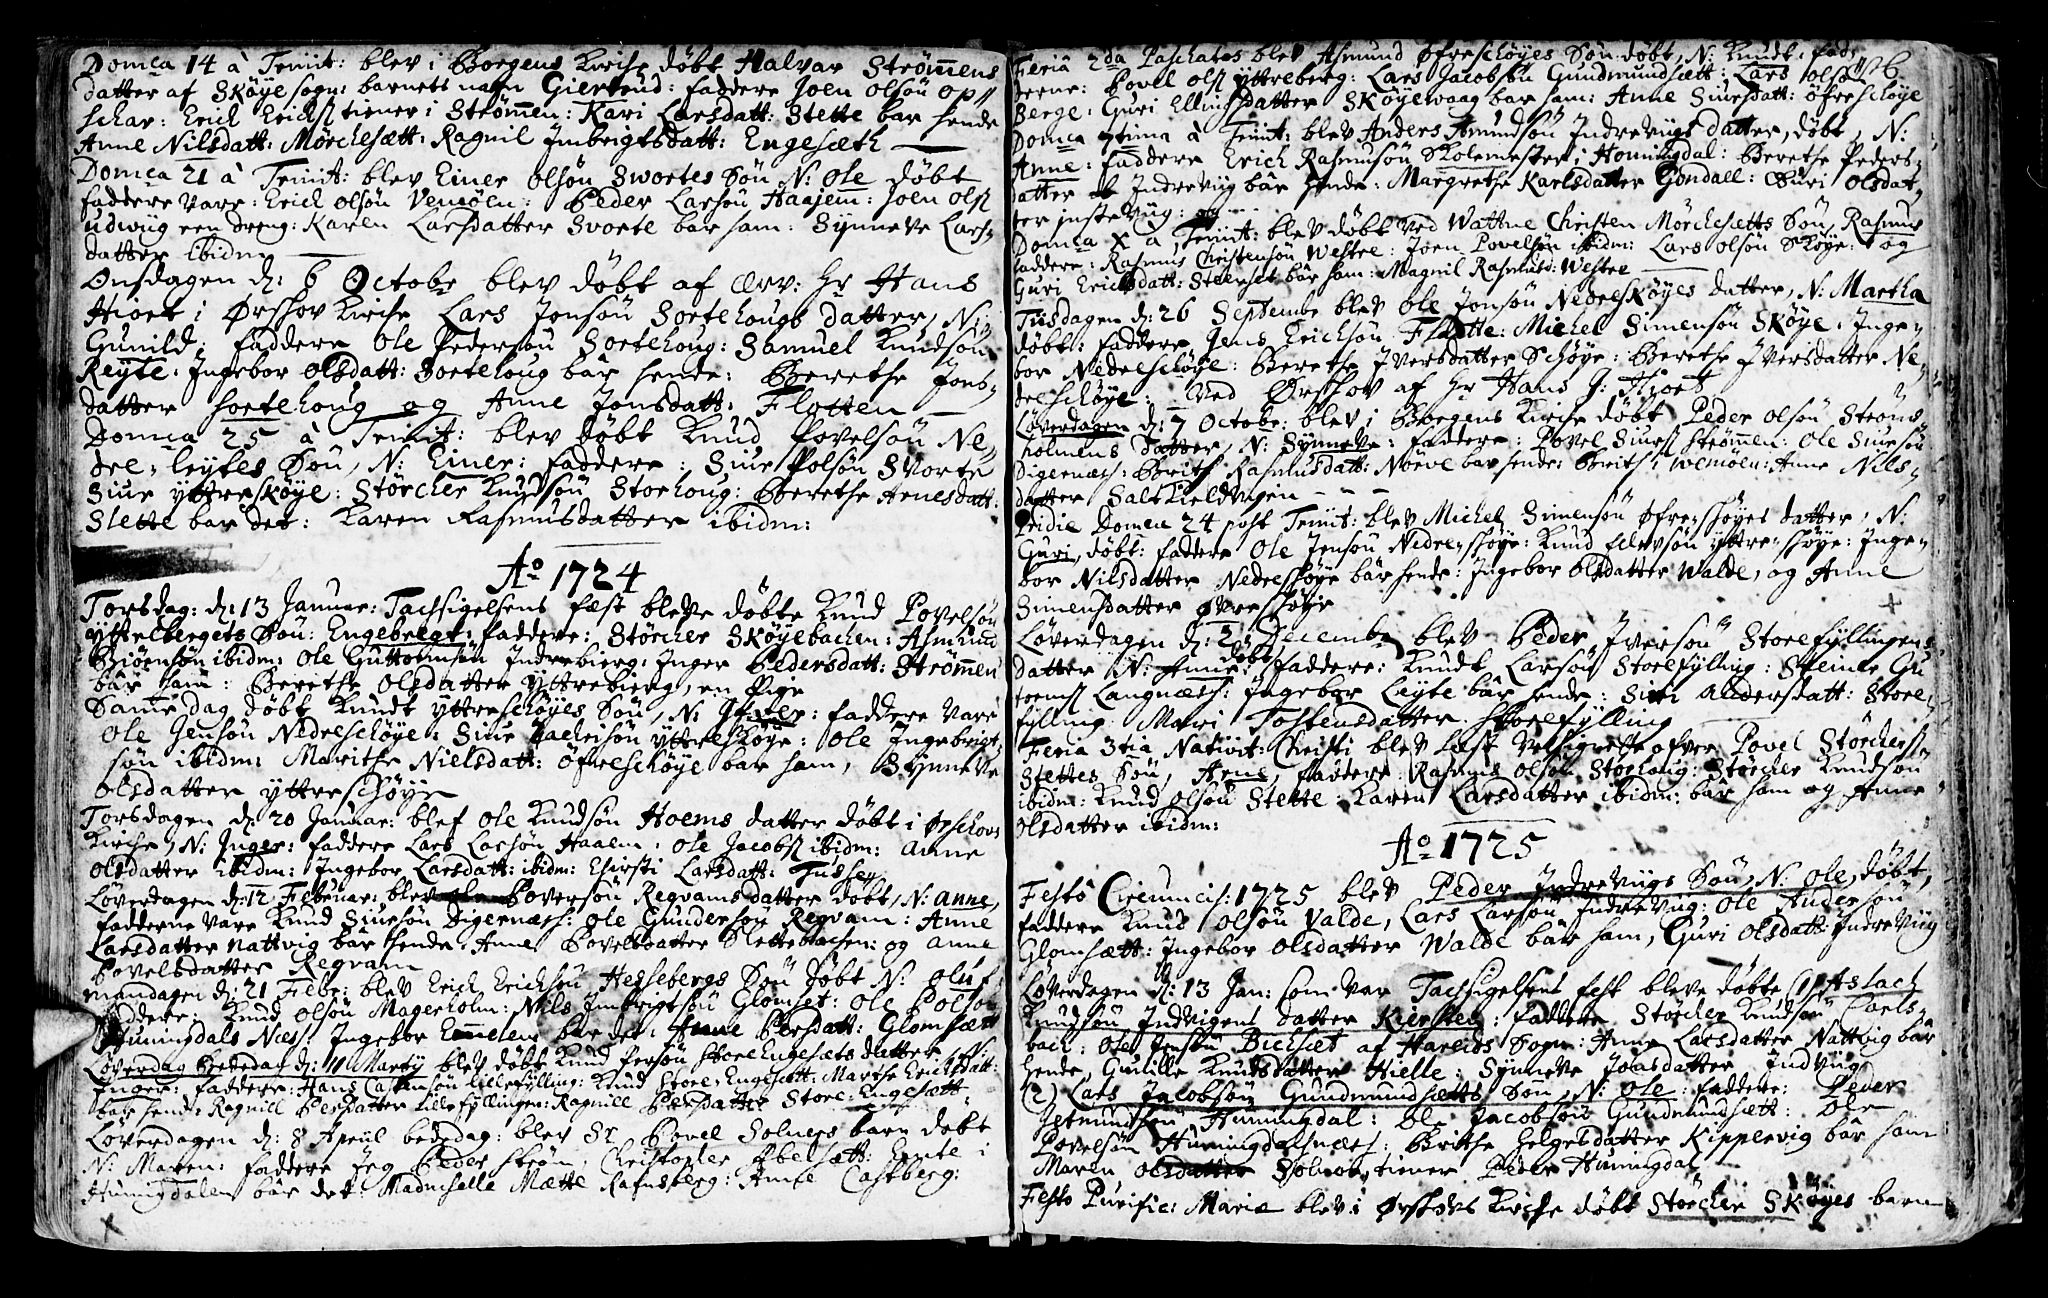 Domca 14 à Trinit: blev i Borgens Kirche døbt Halvar Strømens
datter af Skøye sogn: barnets nafn Giertrud: faddere Joen Olsøn Op//
schar: Erich Erichs: tiener i Strømen: Kari Larsdatt: Stette bar hende
Anne Nilsdatt: Mørchesætt: Ragnil Imbrigtsdatt: Engesæth
Domca 21 à Trinit: blev Einer Olsøn Swortes Søn N: Ole døbt
faddere vare: Erich Olsøn Vemøen: Peder Larsøn Haajem: Joen Ols
udwiig een dreng: Karen Larsdatter Svorte bar ham: Synneve Lars-
datter ibidm
Onsdagen d: 6 Octobr blev døbt af ærv: Hr Hans
Hiort i Ørshov Kirche Lars Jonsøn Sortehougs datter, N:
Gunild: faddere Ole Pedersøn Sortehoug: Samuel Knudsøn
Reyte: Ingebor Olsdatt: Sortehoug bar hende: Berethe Jons-
datter Sortehoug og Anne Jonsdatt: Flotten
Domca 25 à Trinit: blev døbt Knud Povelsøn Ne-
dre-leytes Søn, N: Einer: faddere: Siur Polsøn Svorte
Siur yttreskøye: Størcher Knudsøn Storhoug: Berethe Arnesdatt:
Slette bar det: Karen Rasmusdatter ibidm:
Ao 1724
Torsdag: d: 13 Januar: Tachsigelsens fæst bleve døbte Knud Povelsøn
yttrebergets Søn: Engebregt: faddere: Størcher Skøyebachen: Asmund
Biørnsøn ibidm: Ole Guttormsøn Indrebierg: Inger Pedersdatt: Strømen
bar ham: Berethe Olsdatter yttrebierg, en Pige
Samme dag døbt Knudt yttreschøyes Søn, N: faddere vare
Ole Jensøn Nedreschøye: Siur Zachrisøn yttreskøye: Ole Ingebrigt-
søn ibidm: Marithe Nielsdatt: øfreschøye bar ham, Synneve
Olsdatter yttreschøye
Torsdagen d: 20 Januar: blef Ole Knudsøn Hoems datter døbt i Ørschov
Kirche, N: Inger: faddere Lars Larsøn Haaem: Ole Jacobs ibidm: Anne
Olsdatter ibidm: Ingebor Larsdatt: ibidm: Chirsti Larsdatt: Tusse
Løverdagen d: 12 Februar: blev Poversøn Regvams datter døbt, N: Anne,
fadderne vare Knud Siursøn Digernæss: Ole Gundersøn Regvam: Anne
Larsdatter Nattvig bar hende: Anne Povelsdatter Slettebachen: og Anne
Povelsdatter Regvam
Mandagen d: 21 Febr: blev Erich Erichsøn Hesseberg Søn døbt N: Oluf
faddere: Knud Olsøn Magerholm: Nils Imbrigtsøn Glomset: Ole Polsøn
Humingdals Næs: Ingebor bar det: Anne Persdatt: Glomsætt
Løverdag Bededag d: 11 Marty blev døbt Knud Persøn Store Engesæts datter N:
Inger: faddere: Hans Lillefylling: Knud Store-Engesætt: Marthe Erichsdatt:
bar hende: Ragnill Persdatter Lillefyllingen: Ragnill Persdatter Store-Engesætt
Løverdagen d: 8 Apriil bededag: blev Sr Povel Solners barn døbt
N: Maren: faddere Jeg Peder Strøm, Christopher Ebelsætt: Ente i
Humingdalen bar det: Madmselle Mætte Ramsberg: Anne Castberg:
Feriâ 2da Paschates blev Asmund Øfreschøyes Søn døbt, N: Knudt: fad-
derne: Povel Ols yttreberg: Lars Jacobsøn Gundmundsætt: Lars Olsøn
Berge: Guri Ellingsdatter Skøyewaag bar ham: Anne Siursdatt: Øfreschøye
Domca 7tima à Trinit: blev Anders Amundsøn Indreviigs datter, døbt, N:
Anne: faddere Erich Rasmusøn Skolemester i Homingdal: Berethe Peders-
datter Indreviig bar hende: Margrethe Karlsdatter Gondall: Guri Olsdat-
ter justeviig: og
Domca X à Trinit: blev døbt ved Wattne Christen Mørchesætts Søn, Rasmus
faddere: Rasmus Christensøn Westre: Joen Povelsøn ibidm: Lars Olsøn Skøye: og
Guri Erichsdatt: Steenset bar ham: Magnil Rasmusd: Westre
Tiisdagen d: 26 Septembr blev Ole Jonsøn Nedreskøyes datter, N: Martha
døbt: faddere Jens Erichsøn Flotte: Michel Simensøn Skøye: Inge-
bor Nedreschøye: Berethe Iversdatter Schøye: Berethe Iversdatter Ne-
dreschøye: ved Ørshov af Hr Hans J: Hiort
Løverdagen d: 7 Octobr: blev i Borgens Kirche døbt Peder Olsøn Strøms
holmens datter, N: Synneve: faddere: Povel Siurs Strømmen: Ole Siursøn
Digernæss: Brith Rasmusdatt: Nørve bar hende: Brith i Wemøen: Anne Nils-
datter Saltkieldvigen
Pridie Domca 24 post Trinit: blev Michel Simensøn Øfre-shøyes datter, N:
Guri, døbt: faddere Ole Jensøn Nedre-shøye: Knud Ellevsøn yttre-shøye: Inge-
bor Nilsdatter Nedreshøye bar hende: Ingebor Olsdatter Walde, og Anne
Simensdatter Øvreshøye
Løverdagen d: 2 Decembr blev Peder Iversøn Storefyllingens
datter N: Anne døbt, faddere: Knudt Larsøn Storefylling: Steiner Gu
torms Langnæss: Ingebor Leyte bar hende: Siri Andersdatt: Store-
fylling: Mari Tostensdatter Storefylling
Feria 3tia Nativit: Christi blev læst velsignelse ofver Povel Størchers:
Stettes Søn, Arne, faddere Rasmus Olsøn Storhoug: Størcher Knudsøn
ibidm: Knud Olsøn Stette: Karen Larsdatter ibidm: bar ham og Anne
Olsdatter ibidm:
Ao 1725
Festo Circumcis: 1725 blev Peder Indreviigs Søn, N: Ole, døbt,
faddere Knud Olsøn Valde, Lars Larsøn Indreviig: Ole Andersøn
Glomsætt: Ingebor Olsdatter Walde bar ham, Guri Olsdatt: Indreviig
Løverdagen d: 13 Jan: som var Tachsigelsens fest bleve døbte (1) Aslach
Knudsøn Indvigens datter Kiersten: faddere Størcher Knudsøn Lars-
bach: Ole Jensøn Bichset af Hareids Sogn: Anne Larsdatter Nattvig bar
hende, Gunille Knudsdatter Hielle: Synneve Joensdatter Indviig
(2) Lars Jacobsøn Gundmundsætts Søn, N: Ole: faddere: Peder
Jetmundsøn Humingdal: Ole Jacobsøn Gundmundsætt: Ole
Povelsøn Humingdalsnæss: Brithe Helgesdatter Kippervig bar ham
Maren Olsdatter tiener Peder Humingdal
Festo Purific: Mariæ blev i Ørschovs Kirche døbt Størcher Skøyes barn